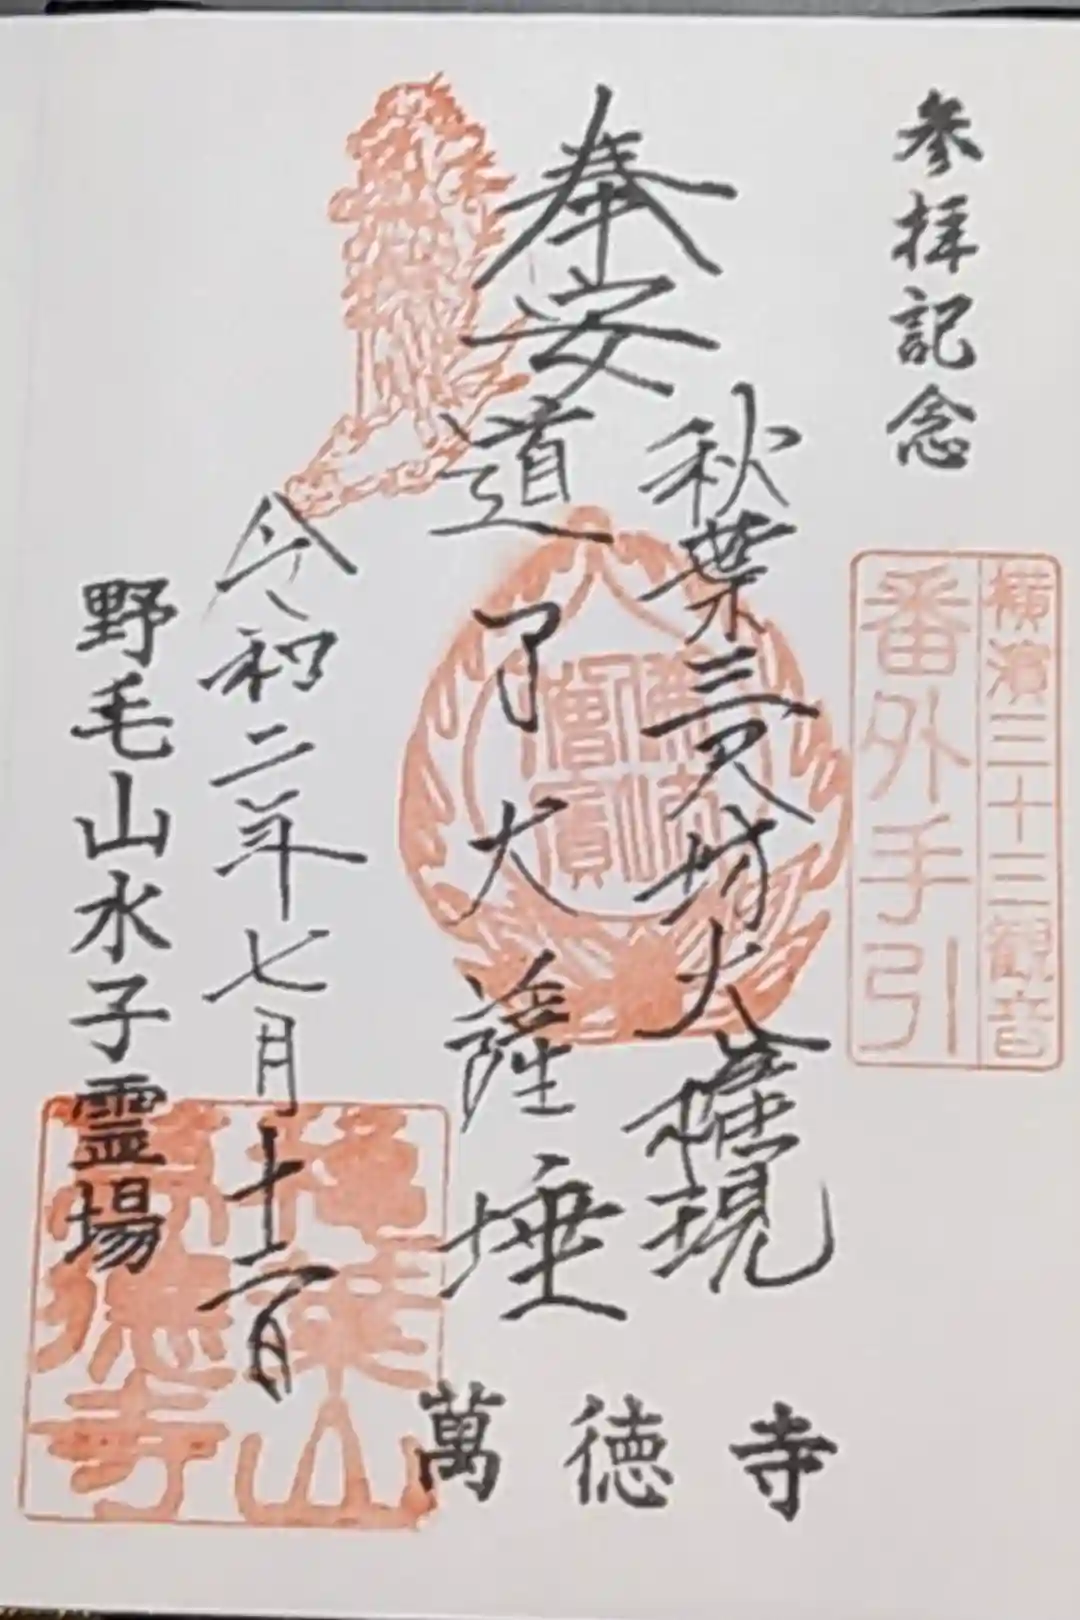 参拝記念
横濱三十三観音
番外手引
奉安
秋葉三尺坊大権現
道了大薩埵
佛法
僧寳
令和二年七月十二日
野毛山水子霊場
萬徳寺
萬徳寺